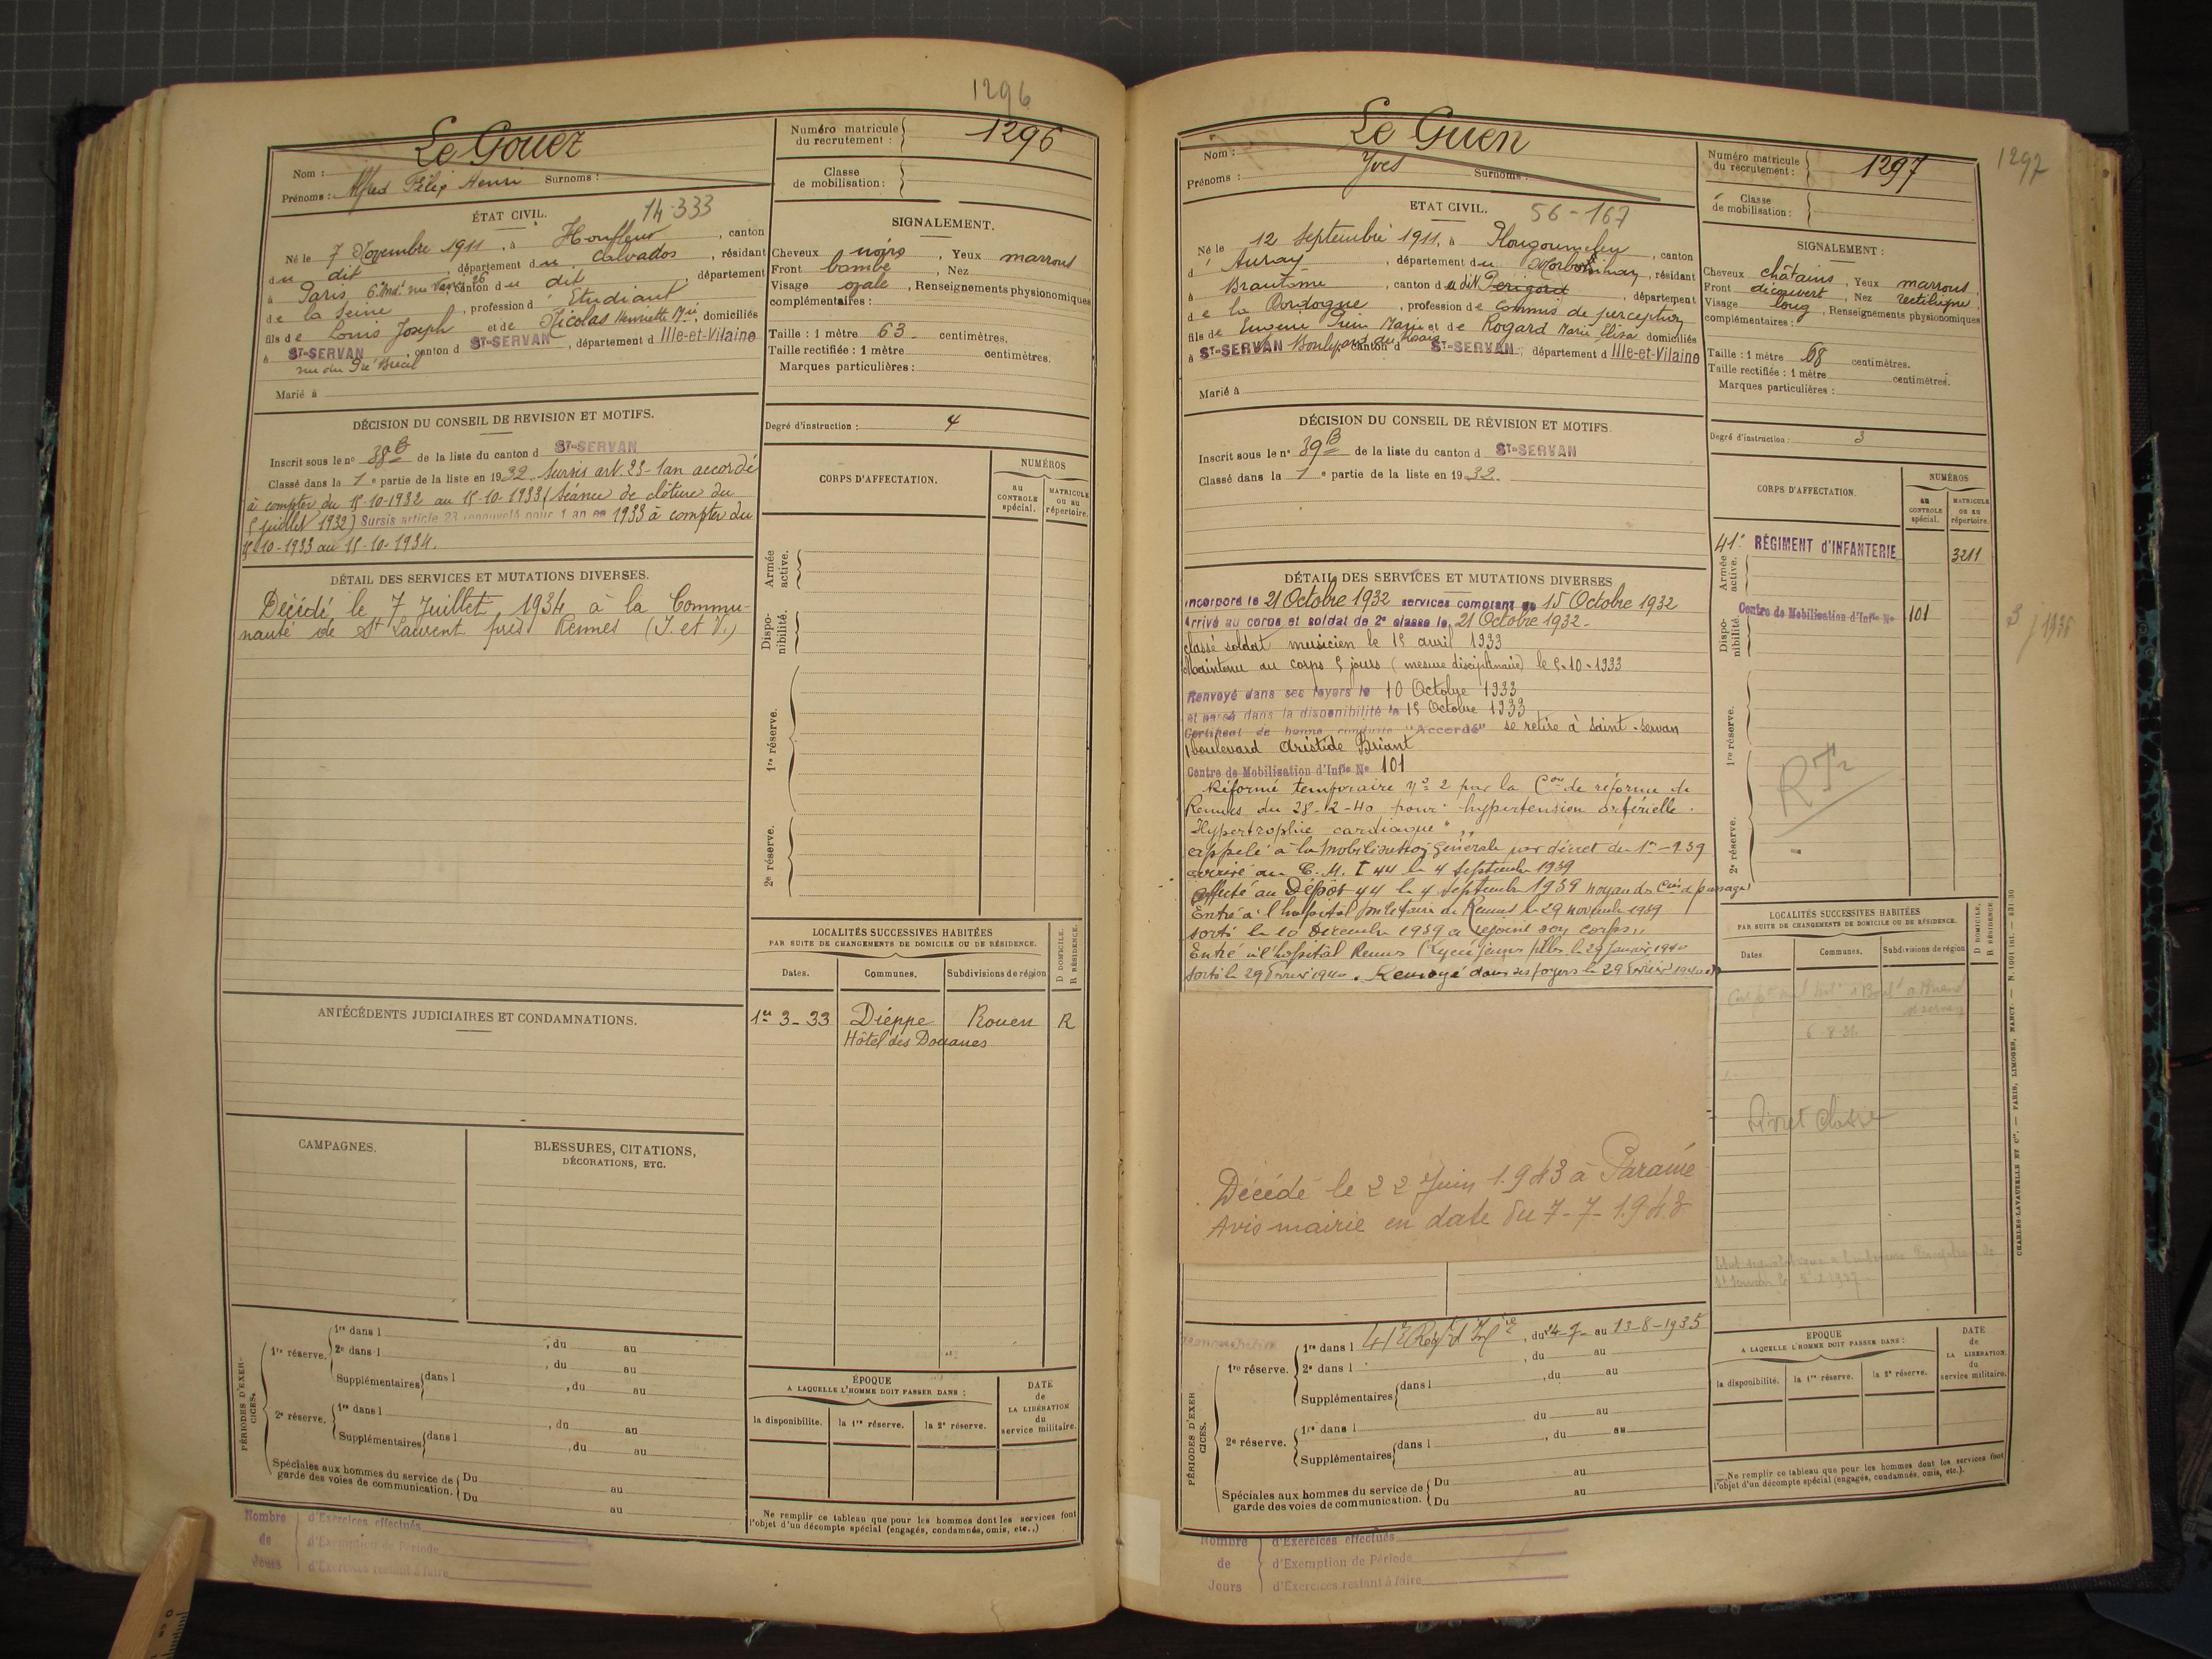 1296
Le Gouez
Nom :
Prénoms : Alfred Félix Henri Surnoms :
Numéro matricule du recrutement : 1296
Classe de mobilisation :
ÉTAT CIVIL. 14-333
Né le 7 Novembre 1911, à Honfleur, canton
du dit, département du Calvados, résidant
à Paris, canton du dit, département
de la Seine, profession d'Etudiant
fils de Louis Joseph et de Nicolas Henriette Mie, domiciliés
à ST-SERVAN, canton d ST-SERVAN, département d Ille-et-Vilaine
rue du Pré Brécel
Marié à
SIGNALEMENT.
Cheveux noirs, Yeux marrons
Front bombé, Nez
Visage ovale, Renseignements physionomiques
complémentaires :
Taille : 1 mètre 63 centimètres.
Taille rectifiée : 1 mètre centimètres.
Marques particulières :
Degré d'instruction : 4
DÉCISION DU CONSEIL DE REVISION ET MOTIFS.
Inscrit sous le n° 38 B de la liste du canton d ST-SERVAN
Classé dans la 1e partie de la liste en 1932. Sursis art. 23-1 an accordé
à compter du 15-10-1932 au 15-10-1933 (séance de clôture du
juillet 1932) Sursis article 23 renouvelé pour 1 an en 1933 à compter du
15-10-1933 au 15-10-1934.
DÉTAIL DES SERVICES ET MUTATIONS DIVERSES.
Décédé le 7 Juillet 1934 à la Commu-
nauté de St Laurent près Rennes (I. et V.)
CORPS D'AFFECTATION.
NUMÉROS
au CONTROLE spécial.
MATRICULE ou au répertoire.
Armée active.
Dispo-nibilité.
1re réserve.
2e réserve.
ANTÉCÉDENTS JUDICIAIRES ET CONDAMNATIONS.
CAMPAGNES.
BLESSURES, CITATIONS,
DÉCORATIONS, ETC.
LOCALITÉS SUCCESSIVES HABITÉES
PAR SUITE DE CHANGEMENTS DE DOMICILE OU DE RÉSIDENCE.
D DOMICILE.
R RÉSIDENCE.
Dates. Communes. Subdivisions de région
1er-3-33 Dieppe Rouen R
Hôtel des Douanes
PÉRIODES D'EXERCICES.
1re réserve. 1re dans l , du au
2e dans l , du au
Supplémentaires dans l , du au
2e réserve. 1re dans l , du au
Supplémentaires dans l , du au
Spéciales aux hommes du service de garde des voies de communication. Du au
Du au
ÉPOQUE
A LAQUELLE L'HOMME DOIT PASSER DANS :
la disponibilité. la 1re réserve. la 2e réserve.
DATE de LA LIBÉRATION du service militaire.
Ne remplir ce tableau que pour les hommes dont les services font
l'objet d'un décompte spécial (engagés, condamnés, omis, etc..)
Nombre de Jours
d'Exercices effectués
d'Exemption de Période
d'Exercices restant à faire
Le Guen
Nom :
Prénoms : Yves Surnoms :
Numéro matricule du recrutement : 1297
1297
Classe de mobilisation :
ETAT CIVIL. 56-167
Né le 12 Septembre 1911, à Plougoumelen, canton
d'Auray, département du Morbihan, résidant
à Brantome, canton du dit Périgord, département
de la Dordogne, profession de Commis de perception
fils de Marie et de Rogard Marie Elisa domiciliés
à ST-SERVAN Boulevard du Rosais canton d ST-SERVAN, département d Ille-et-Vilaine
Marié à
SIGNALEMENT :
Cheveux châtains, Yeux marrons
Front découvert, Nez rectiligne
Visage long, Renseignements physionomiques
complémentaires :
Taille : 1 mètre 68 centimètres.
Taille rectifiée : 1 mètre centimètres.
Marques particulières :
Degré d'instruction : 3
DÉCISION DU CONSEIL DE RÉVISION ET MOTIFS.
Inscrit sous le n° 39 B de la liste du canton d ST-SERVAN
Classé dans la 1e partie de la liste en 1932.
DÉTAIL DES SERVICES ET MUTATIONS DIVERSES
Incorporé le 21 Octobre 1932 services comptant du 15 Octobre 1932
Arrivé au corps et soldat de 2e classe le 21 Octobre 1932.
Classé soldat musicien le 15 avril 1933
Maintenu au corps 5 jours (mesure disciplinaire) le 5-10-1933
Renvoyé dans ses foyers le 10 Octobre 1933
et passé dans la disponibilité le 15 Octobre 1933
Certificat de bonne conduite "Accordé" se retire à Saint-Servan
1 boulevard Aristide Briant
Centre de Mobilisation d'Infie N° 101
Réformé temporaire n° 2 par la Con de réforme de
Rennes du 28-2-40 pour "hypertension artérielle.
Hypertrophie cardiaque"
Appelé à la mobilisation générale par décret du 1er-9-39
arrivé au C. M. I 44 le 4 Septembre 1939
Affecté au Dépôt 44 le 4 Septembre 1939 noyau de Cie de passage
Entré à l'hôpital militaire de Rennes le 29 novembre 1939
sorti le 10 Décembre 1939 a rejoint son corps
Entré à l'hôpital Rennes (Lycée jeunes filles) le 29 Janvier 1940
Sorti le 29 Février 1940. Renvoyé dans ses foyers le 29 Février 1940
Décédé le 22 Juin 1943 à Paramé
Avis mairie en date du 7-7-1943
CORPS D'AFFECTATION.
NUMÉROS
au CONTROLE spécial.
MATRICULE ou au répertoire.
Armée active. 41e RÉGIMENT d'INFANTERIE 3211
Dispo-nibilité. Centre de Mobilisation d'Infie N° 101
1re réserve.
2e réserve.
RT2
LOCALITÉS SUCCESSIVES HABITÉES
PAR SUITE DE CHANGEMENTS DE DOMICILE OU DE RÉSIDENCE.
D DOMICILE.
R RÉSIDENCE
Dates. Communes. Subdivisions de région
Livret classé
PÉRIODES D'EXERCICES.
1re réserve. 1re dans l 41e Regt d'Infie, du 24-7- au 13-8-1935
2e dans l , du au
Supplémentaires dans l , du au
2e réserve. 1re dans l du au
Supplémentaires dans l , du au
Spéciales aux hommes du service de garde des voies de communication. Du au
Du au
EPOQUE
A LAQUELLE L'HOMME DOIT PASSER DANS :
la disponibilité. la 1re réserve. la 2e réserve.
DATE de LA LIBÉRATION du service militaire.
Ne remplir ce tableau que pour les hommes dont les services font
l'objet d'un décompte spécial (engagés, condamnés, omis, etc.).
CHARLES-LAVAUZELLE ET Cie. — PARIS, LIMOGES, NANCY. — N. 1001 int. — 831-30
Nombre de Jours
d'Exercices effectués
d'Exemption de Période
d'Exercices restant à faire